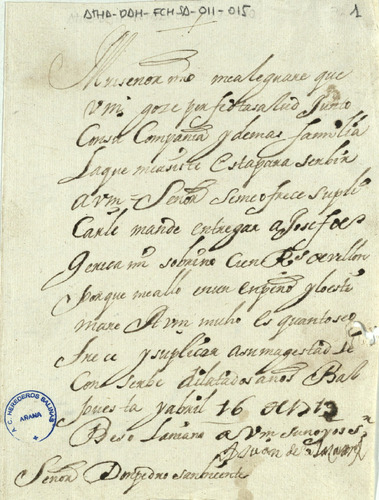 ATHA-DAH-FCHSA-011-015
1
Mui señor mio me alegrare que
vm goze perfecta salud Junto
Con su Compañia y demas familia
La que me asiste esta para serbir
a vm = Señor se me ofrece supli
Carle mande entregar a Josef de
Gereca mi sobrino Cien Rs de vellon
Porque me allo en un enpeño y lo esti
mare A vm mucho es quanto se o
frece y suplicar a su magestad le
Conserbe dilatados años Bal
puesta y abril 16 de 1713
Beso La mano a Vm su
Juan de
Señor Don pedro san bicente
A.C. HEREDEROS SALINAS
ARANA